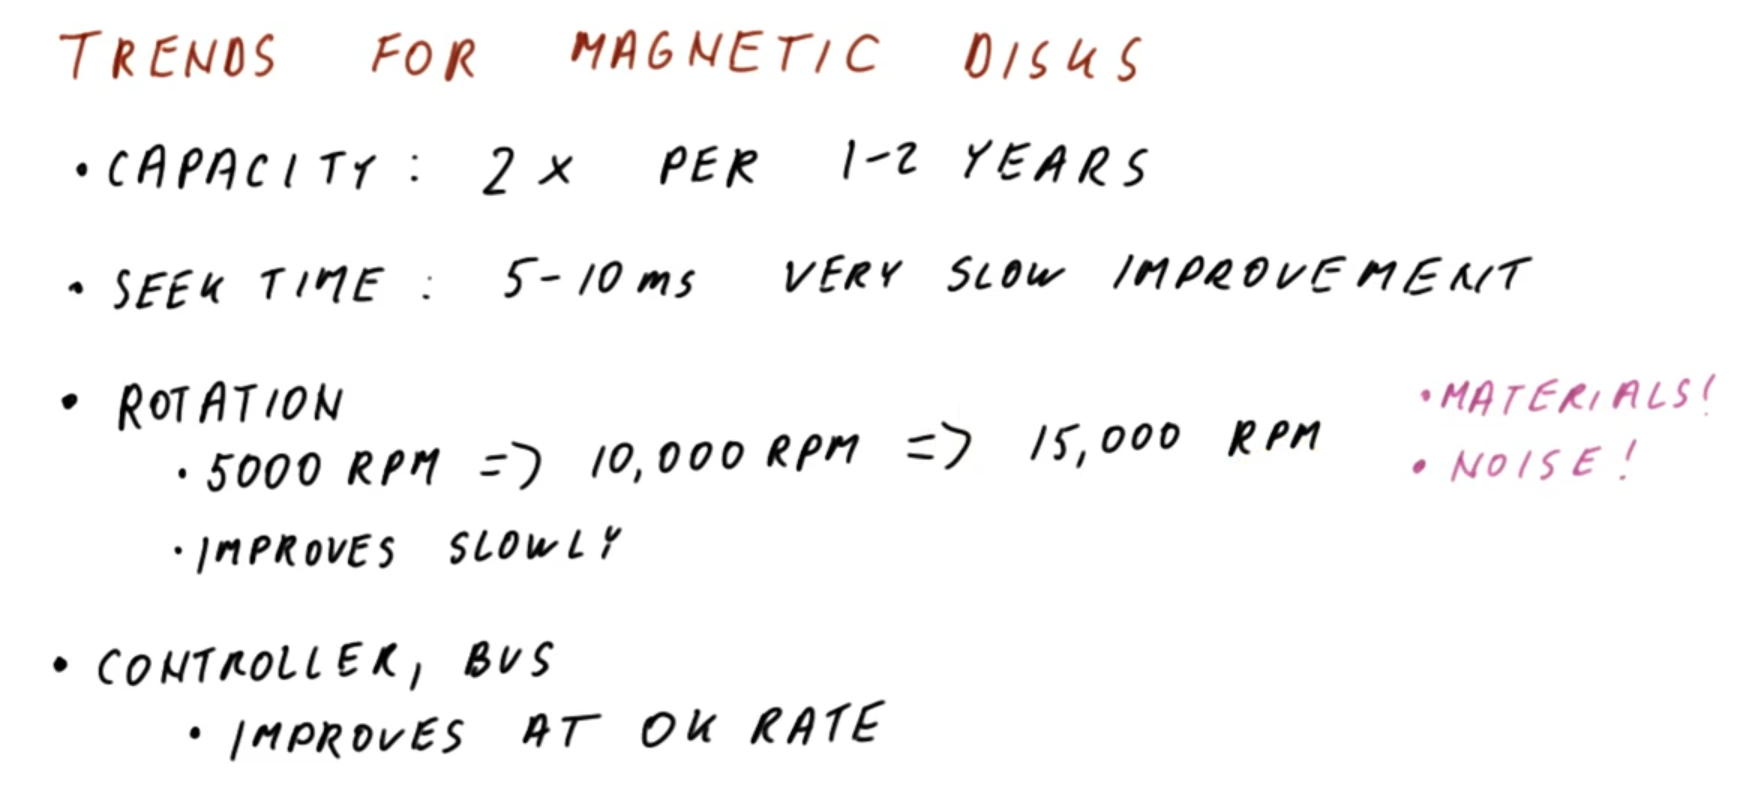 TRENDS FOR MAGNETIC DISKS
• CAPACITY: 2x PER 1-2 YEARS
• SEEK TIME: 5-10ms VERY SLOW IMPROVEMENT
• ROTATION
• 5000 RPM => 10,000 RPM => 15,000 RPM
• IMPROVES SLOWLY
• MATERIALS!
• NOISE!
• CONTROLLER, BUS
• IMPROVES AT OK RATE